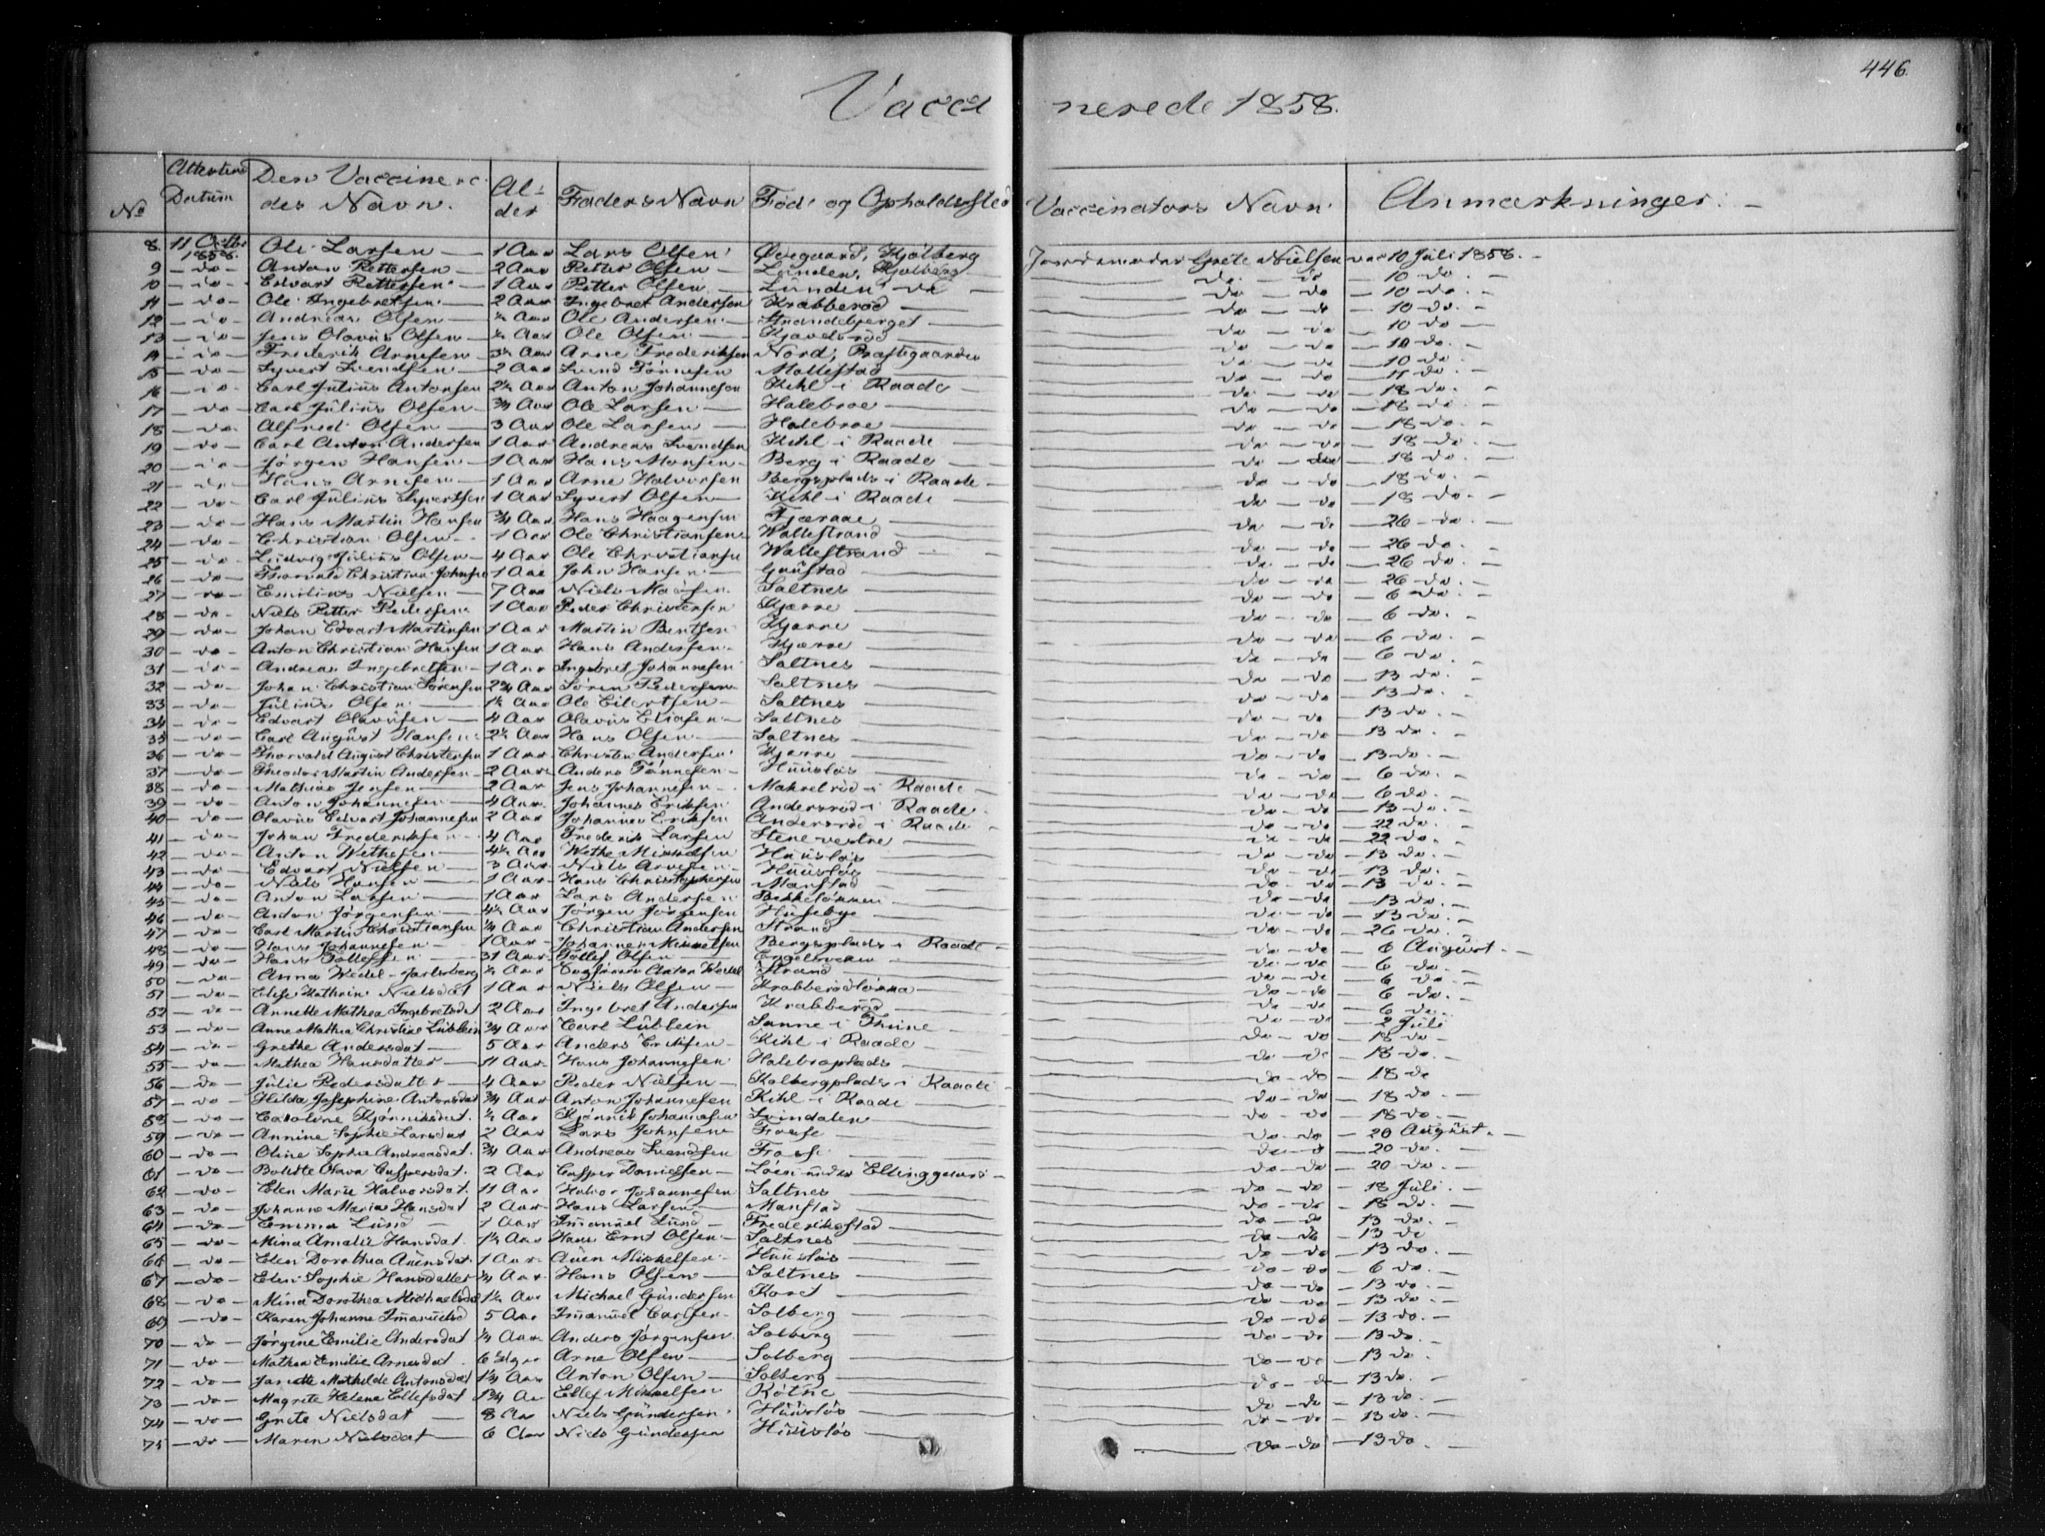 446.
Vacci nerede 1858.
No Attestens Datum Den Vaccinere des Navn. Al- der Faders Navn Föde og Opholdssted Vaccinators Navn. Anmærkninger. —
8 11 Octbr 1858. Ole Larsen — 1 Aar Lars Olsen Øvegaard, Kjølberg Jordemoder Grete Nielsen den 10 Juli 1858. —
9 — do — Anton Pettersen — 2 Aar Petter Olsen — Lunden, Kjølberg do — do — 10 do. —
10 — do — Edvart Pettersen 1 Aar Petter Olsen — Lunden do do — do — 10 do. —
11 — do — Ole Ingebretsen 2 Aar Ingebret Andersen Krabberød — do — do — 10 do. —
12 — do — Andreas Olsen — ¾ Aar Ole Andersen — Strandebjerget — do — do — 10 do —
13 — do — Jens Olavus Olsen — Aar Ole Olsen — do — do — 10 do.
14 — do — Frederik Arnesen — 3¼ Aar Arne Frederiksen Nord, Præstegaarden do — do — 10 do. —
15 — do — Syvert Svendsen — 2 Aar Svend Tønnesen Mallestad — do — do — 17 do. —
16 — do — Carl Julius Antonsen 2¼ Aar Anton Johannesen Kihl i Raade — do — do — 18 do. —
17 — do — Carl Julius Olsen — ¾ Aar Ole Larsen — Halebroe — do — do — 18 do. —
18 — do. Alfred Olsen — 3 Aar Ole Larsen — Halebroe — do — do — 18 do. —
19 — do — Carl Anton Andersen 1 Aar Andreas Svendsen Kihl i Raade — do — do — 18 do. —
20 — do — Jørgen Hansen — 1 Aar Hans Monsen — Berg i Raade — do — do — 18 do. —
21 — do — Hans Arnesen — 1 Aar Arne Halvorsen Bergsplads i Raade — do — do — 18 do. —
22 — do — Carl Julius Syvertsen 1 Aar Syvert Olsen — Kihl i Raade — do — do — 18 do. —
23 — do — Hans Martin Hansen ¾ Aar Hans Haagensen Fjæraae — do — do — 26 do. —
24 — do — Christian Olsen — 1 Aar Ole Christiansen Wallestrand — do — do — 26 do. —
25 — do — Ludvig Julius Olsen — 4 Aar Ole Christiansen Wallestrand — do — do — 26 do. —
26 — do — Thorvald Christian Johnsen 1 Aar John Hansen — Gaustad — do — do — 26 do. —
27 — do — Emilius Nielsen — 7 Aar Niels Madsen Saltnes — do — do — 6 do. —
28 — do — Niels Petter Pedersen 1 Aar Peder Christensen Kjærre — do — do — 6 do.
29 — do — Johan Edvart Martinsen 1 Aar Martin Bentsen Kjærre — do — do — 6 do. —
30 — do — Anton Christian Hansen 1 Aar Hans Andersen Kjærre — do — do — 6 do. —
31 — do — Andreas Ingebretsen 1 Aar Ingebret Johannesen Saltnes — do — do — 13 do. —
32 — do — Johan Christian Sørensen 2¾ Aar Søren Pedersen Saltnes — do — do — 13 do. —
33 — do — Julius Olsen — 1¼ Aar Ole Eilertsen Saltnes — do — do — 13 do. —
34 — do — Edvart Olavusen — 4 Aar Olavus Eliasen — Saltnes — do — do — 13 do. —
35 — do — Carl August Hansen 2¼ Aar Hans Olsen — Saltnes — do — do — 13 do. —
36 — do — Thorvald August Christensen 1 Aar Christen Andersen Kjærre — do — do — 6 do. —
37 — do — Theodor Martin Andersen 2 Aar Anders Tønnesen Huusløs — do — do — 6 do. —
38 — do — Mathias Jensen — 2 Aar Jens Johannesen Makrelrød i Raade — do — do — 13 do. —
39 — do — Anton Johannesen — 4 Aar Johannes Eriksen Andersrød i Raade — do — do — 22 do. —
40 — do — Olavus Edvart Johannesen 2 Aar Johannes Eriksen Andersrød i Raade — do — do — 22 do. —
41 — do — Johan Frederiksen 4 Aar Frederik Larsen Stene vestre — do — do — 13 do. —
42 — do — Anton Wethesen 4¼ Aar Wethe Huusløs — do — do — 13 do. —
43 — do — Edvart Nielsen — 3 Aar Niels Arvesen Huusløs — do — do — 13 do. —
44 — do — Niels Hansen — 1 Aar Hans Christophersen Manstad — do — do — 13 do. —
45 — do — Anton Larsen — 1 Aar Lars Andersen — do — do — 13 do. —
46 — do — Anton Jørgensen — 4¼ Aar Jørgen Jørgensen Husebye — do — do — 26 do. —
47 — do — Carl Martin Christiansen ¼ Aar Christian Andersen Strand — do — do — 6 August —
48 — do — Hans Johannesen — 1 Aar Johannes Mikkelsen Bergsplads i Raade — do — do — 6 do. —
49 — do — Hans Tollefsen 31 Aar Tollef Olsen — Engelsveien — do — do — 6 do. —
50 — do — Anna Wedel-Jarlsberg ¾ Aar Anton Wedel Strand — do — do — 6 do. —
51 — do — Elise Kathrine Nielsdat 1 Aar Niels Olsen — Krabberødløkka — do — do — 6 do. —
52 — do — Annette Mathea Ingebretsdat 2 Aar Ingebret Andersen Krabberød — do — do — 2 Juli
53 — do — Anne Mathea Christine Lüblein ¾ Aar Carl Lüblein Sanne i Thune — do — do — 18 do —
54 — do — Grethe Andersdat — 5 Aar Anders Eriksen — Kihl i Raade — do — do — 18 do. —
55 — do — Mathea Hansdatter — 11 Aar Hans Johannesen Halebroplads — do — do — 18 do
56 — do — Julie Pedersdatter — 4 Aar Peder Nielsen — Kolbergplads i Raade — do — do — 18 do. —
57 — do — Hilda Josephine Antonsdat ¾ Aar Anton Johannesen Kihl i Raade do — do — 18 do. —
58 — do — Caroline Kjønniksdat. ¼ Aar Kjønnik Johannesen Svindalen — do — do — 20 August. —
59 — do — Annine Sophie Larsdat 2 Aar Lars Johnsen Froese — do — do — 20 do. —
60 — do — Oline Sophie Andreasdat. ¾ Aar Andreas Svendsen Froese — do — do — 20 do. —
61 — do — Bolette Olava Caspersdat. 2 Aar Casper Danielsen — Løes under Ellinggaard — do — do — 18 Juli. —
62 — do — Elen Marie Halvorsdat 11 Aar Halvor Johannesen Saltnes — do — do — 18 do. —
63 — do — Johanne Maria Hansdat 2 Aar Hans Larsen — Manstad — do — do — 13 do. —
64 — do — Emma Lund — 1 Aar Imanuel Lund — Frederikstad — do — do — 13 do
65 — do — Mina Amalie Hansdat. 1¼ Aar Hans Ernt Olsen — Saltnes — do — do — 13 do. —
66 — do — Elen Dorothea Auensdat 1 Aar Auen Mikkelsen — Huusløs — do — do — 6 do. —
67 — do — Elen Sophie Hansdatter ¾ Aar Hans Olsen — Saltnes — do — do — 13 do. —
68 — do — Mina Dorothea Michaelsdat 1¼ Aar Michael Gundersen Koset — do — do — 13 do. —
69 — do — Karen Johanne Imanuelsd 5 Aar Imanuel Carlsen — Solberg — do — do — 13 do. —
70 — do — Jørgine Emilie Andersdat ¾ Aar Anders Jørgensen Solberg — do — do — 13 do. —
71 — do — Mathea Emilie Arnesdat. 6 Arne Olsen — Solberg — do — do — 13 do
72 — do — Janette Mathilde Antonsdat 1¾ Aar Anton Olsen — Solberg — do — do — 13 do. —
73 — do — Magrete Helene Ellefsdat 1¾ Aar Ellef Mikkelsen Røtne — do — do — 13 do. —
74 — do — Grete Nielsdat — 8 Aar Niels Gundersen Huusløs — do — do — 13 do. —
75 — do — Maren Nielsdat — 6 Aar Niels Gundersen Huusløs — do — do — 13 do. —